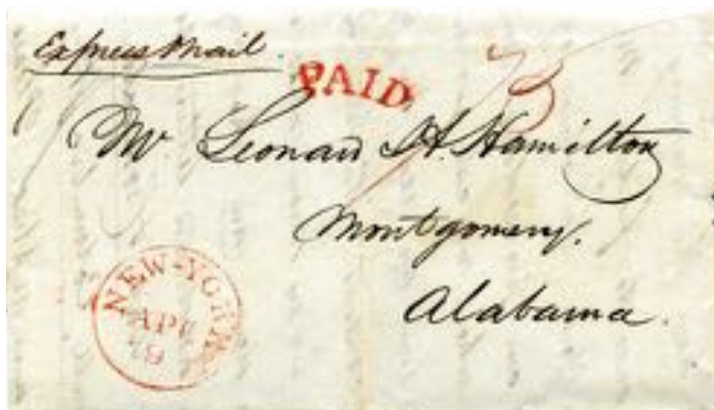 Express Mail
PAID
75
Mr Leonard H. Hamilton
Montgomery.
Alabama.
NEW-YORK
APR
19